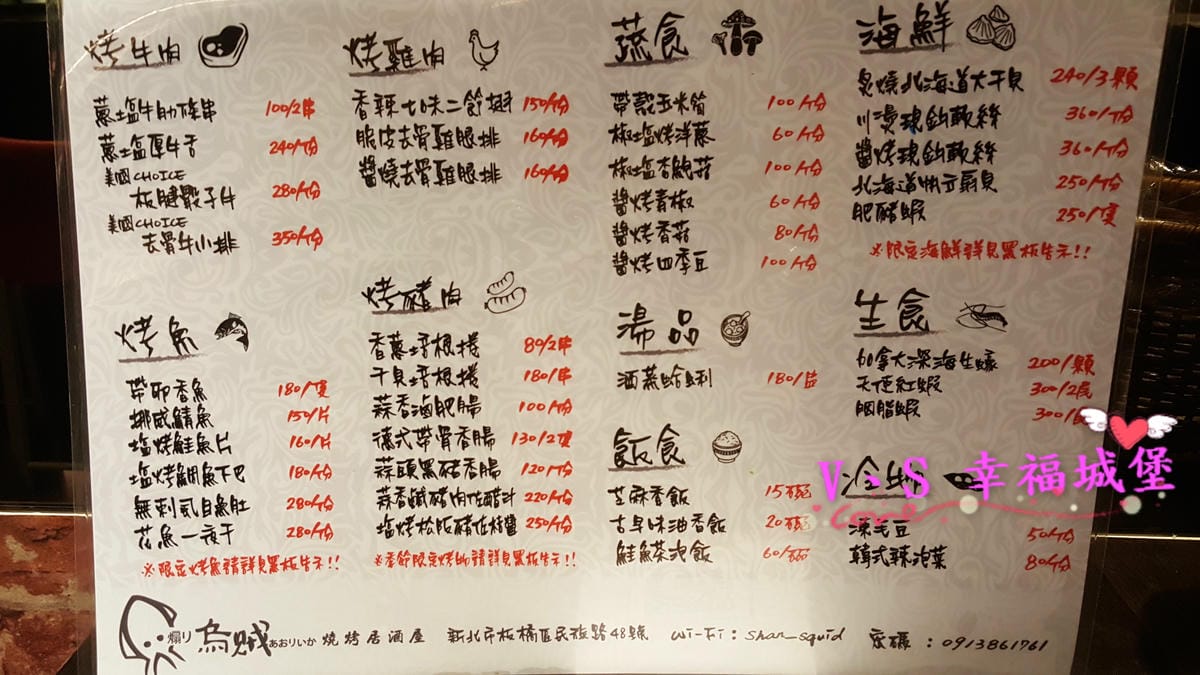 烤牛肉
蔥塩牛肋條串 100/2串
蔥塩厚牛舌 240/份
美國CHOICE
板腱骰子牛 280/份
美國CHOICE
去骨牛小排 350/份
烤雞肉
香辣七味二節翅 150/份
脆皮去骨雞腿排 160/份
醬燒去骨雞腿排 160/份
蔬食
帶殼玉米筍 100/份
椒塩烤洋蔥 60/份
椒塩杏鮑菇 100/份
醬烤青椒 60/份
醬烤香菇 80/份
醬烤四季豆 100/份
海鮮
炙燒北海道大干貝 240/3顆
川燙現鉤軟絲 360/份
醬烤現鉤軟絲 360/份
北海道帆立扇貝 250/份
肥豬蝦 250/隻
※限定海鮮詳見黑板告示!!
烤魚
帶卵香魚 180/隻
挪威鯖魚 150/片
塩烤鮭魚片 160/片
塩烤鯛魚下巴 180/份
無刺虱目魚肚 280/份
花魚一夜干 280/份
※限定烤魚請詳見黑板告示!!
烤豬肉
香蔥培根捲 80/2串
干貝培根捲 180/串
蒜香滷肥腸 100/份
德式帶骨香腸 130/2隻
蒜頭黑豬香腸 120/份
蒜香鹹豬肉佐醋汁 220/份
塩烤松阪豬佐椒醬 250/份
※季節限定烤物請詳見黑板告示!!
湯品
酒蒸蛤蜊 180/
飯食
芝麻香飯 15/碗
古早味油香飯 20/碗
鮭魚茶泡飯 60/碗
生食
加拿大深海生蠔 200/顆
天使紅蝦 300/2尾
胭脂蝦 300/
冷
毛豆 50/份
韓式辣泡菜 80/份
V·S 幸福城堡
煽り烏賊 あおりいか 燒烤居酒屋 新北市板橋區民族路48號 Wi-Fi:shan_squid 密碼:0913861761